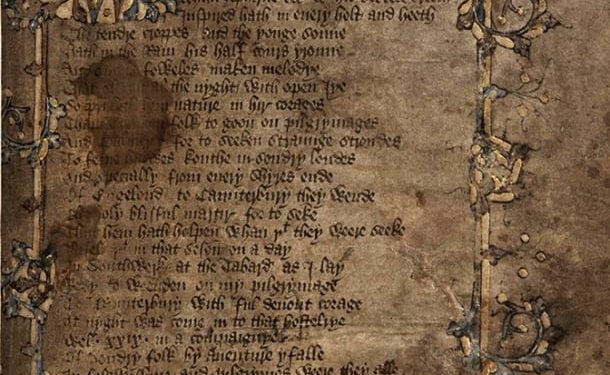 Inspired hath in euery holt and heeth
The tendre croppes and the yonge sonne
hath in the Ram his half cours yronne
foweles maken melodye
al the nyght with open Iye
nature in hir corages
folk to goon on pilgrymages
for to seeken straunge strondes
To ferne halwes kouthe in sondry londes
And specially from euery shyres ende
Of Engelond to Caunterbury they wende
holy blisful martir for to seke
That hem hath holpen whan þt they weere seeke
þt in that seson on a day
In Southwerk at the Tabard as I lay
Redy to wenden on my pilgrymage
To Caunterbury with ful deuout corage
At nyght was come in to that hostelrye
Wel .xxix. in a compaignye
Of sondry folk by auenture yfalle
In and pilgrimes weere they alle